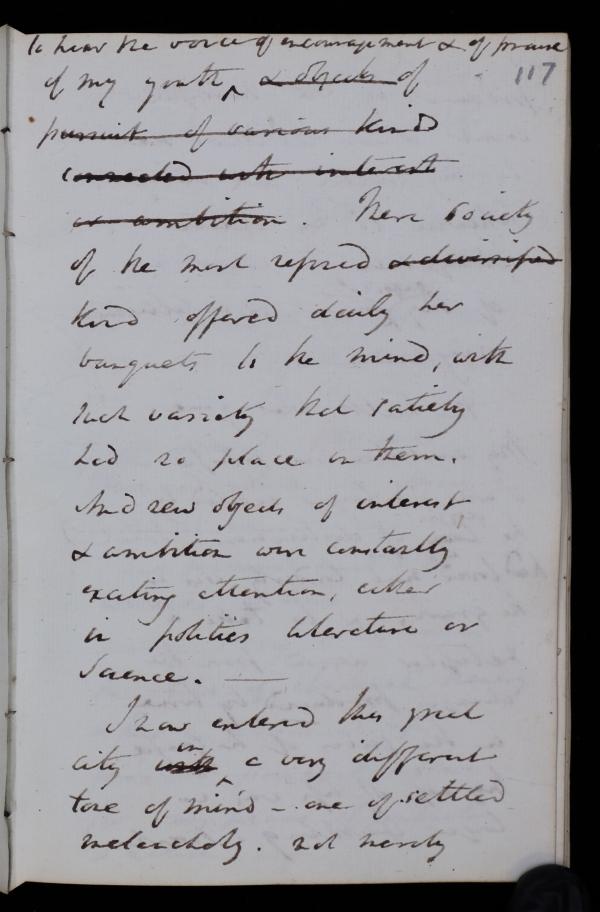 to hear the voice of encouragement & of praise
117
of my youth ‸ & objects of
pursuit of various kind
connected with interest
or ambition. Here society
of the most refined & diversified
kind offered daily her
banquets to the mind, with
such variety that satiety
had no place in them.
And new objects of interest
& ambition were constantly
exciting attention, either
in politics literature or
Science. —
I now entered this great
city with ‸ in a very different
tone of mind – one of settled
melancholy. not merely